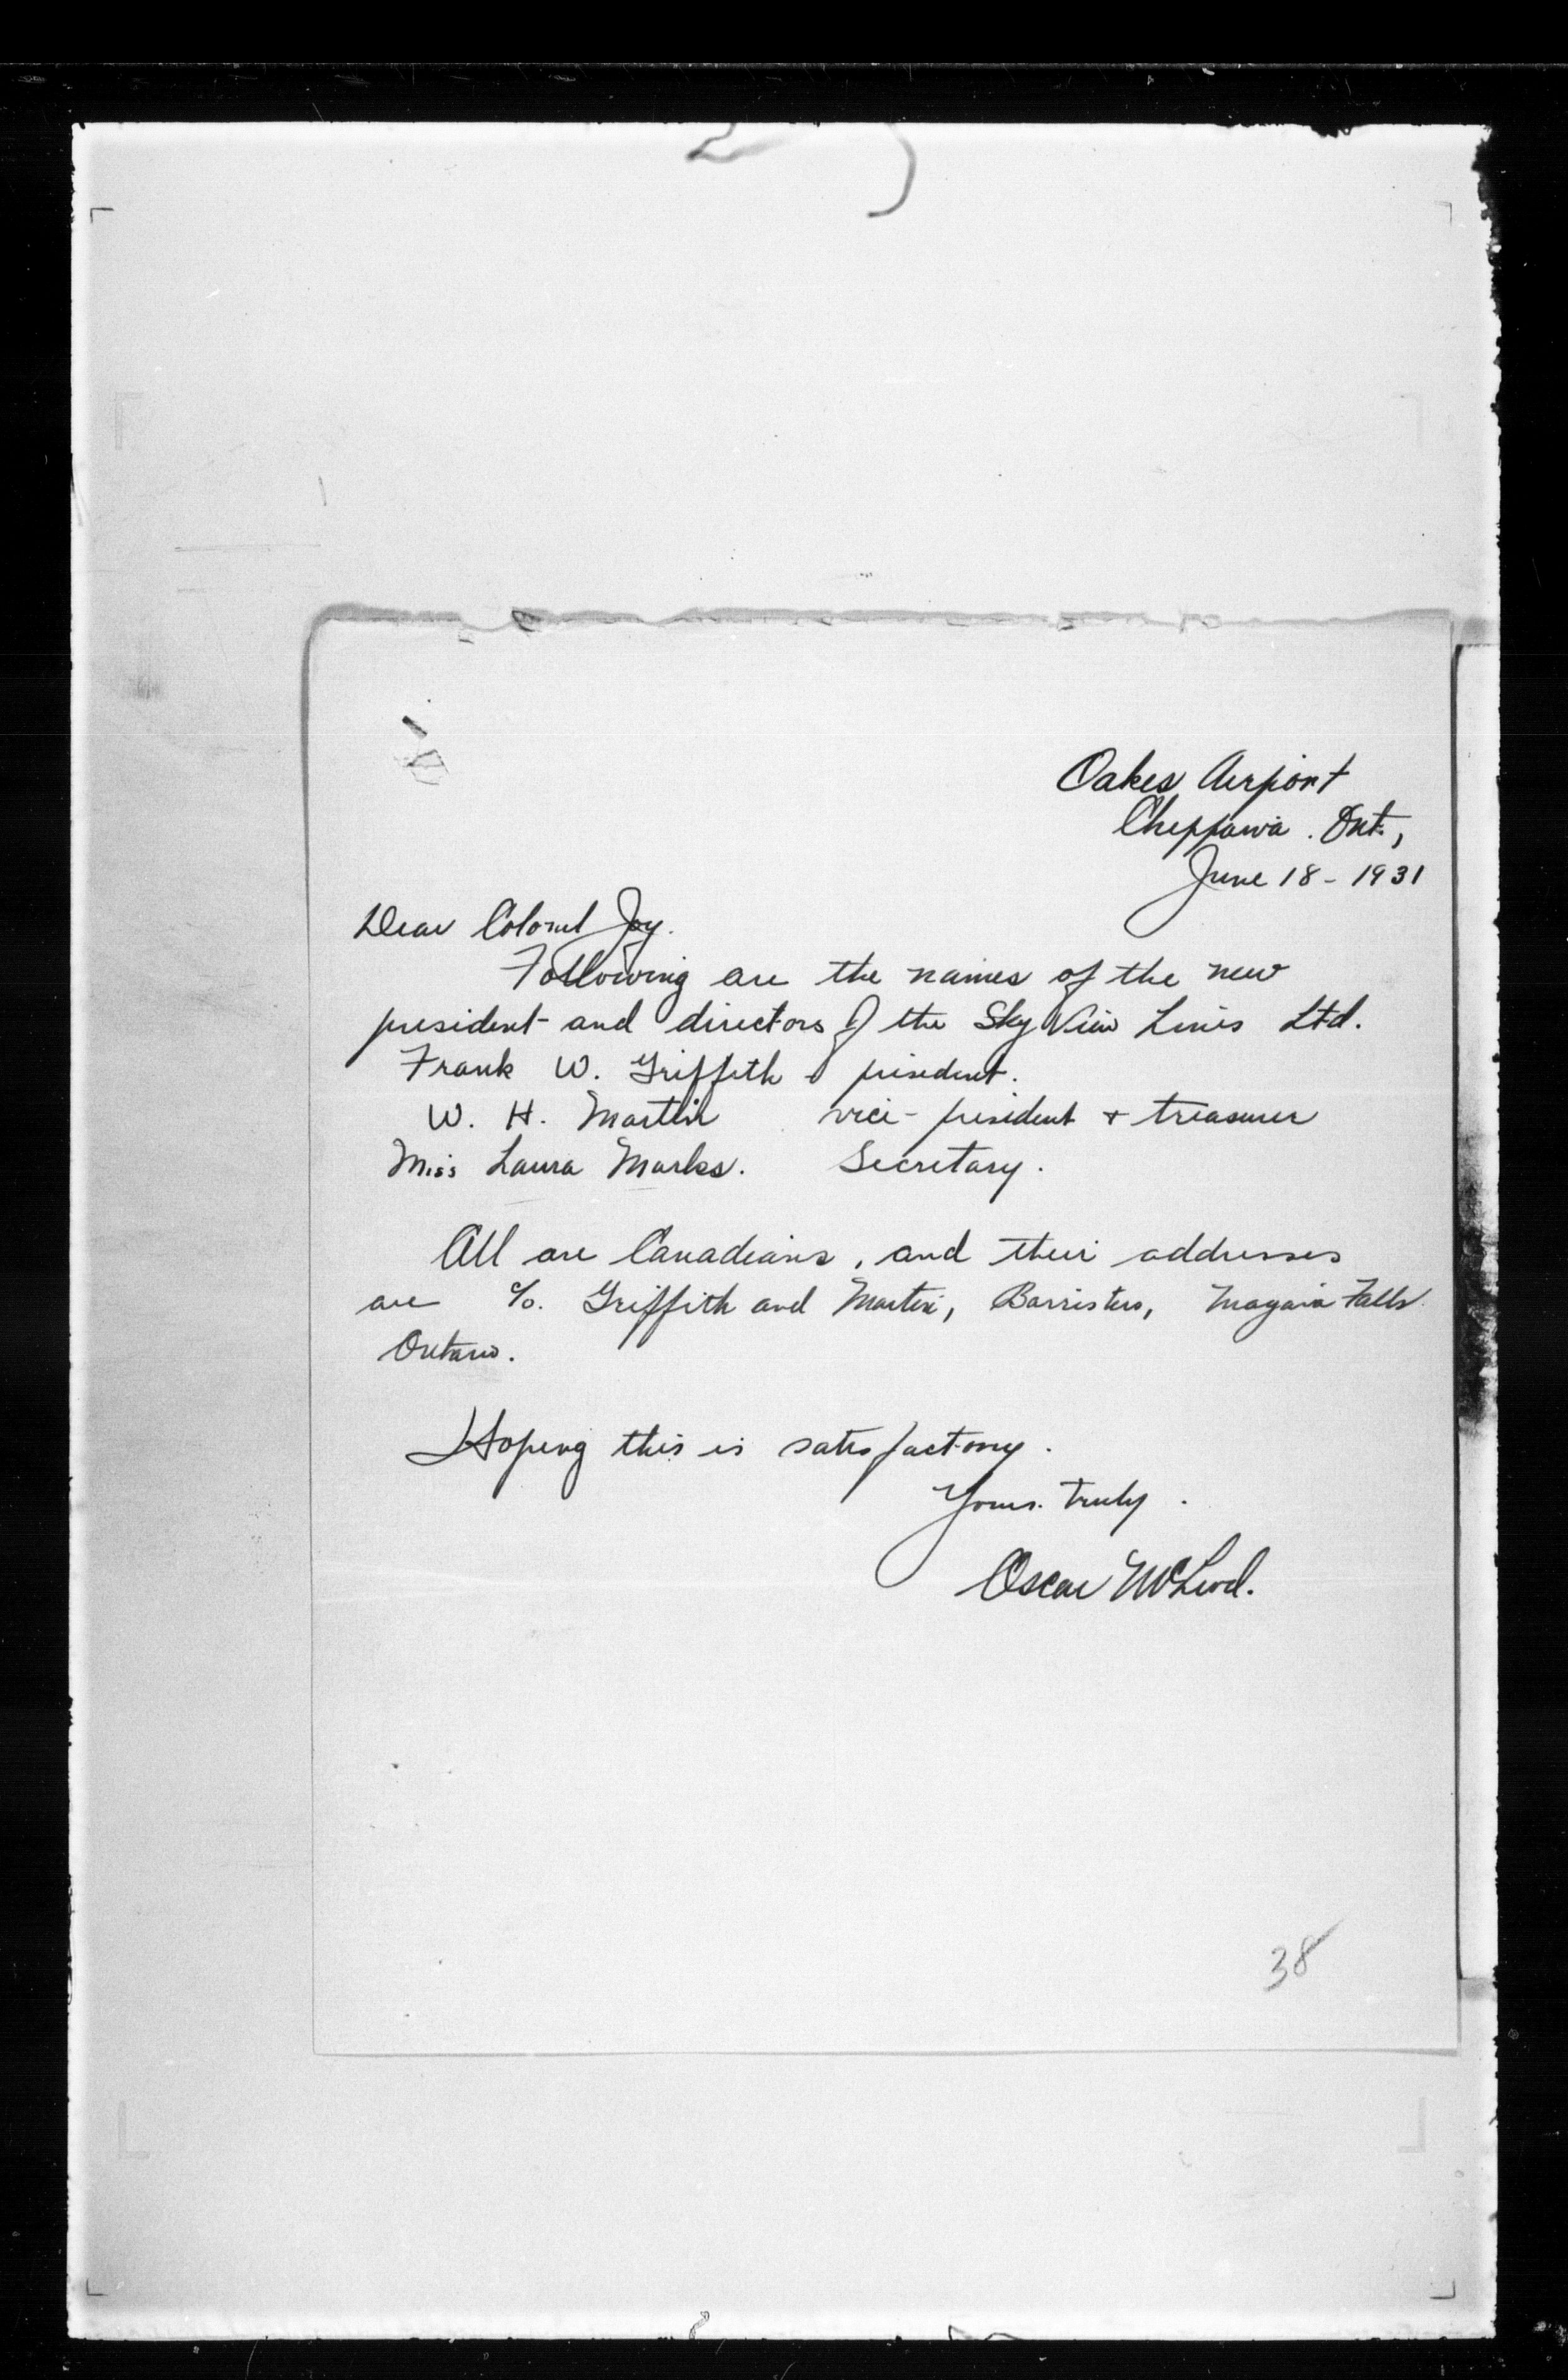 Oakes Airport
Chippawa. Ont.,
June 18 - 1931
Dear Colonel Joy.
Following are the names of the new
president and directors of the Sky View Lines Ltd.
Frank W. Griffith president.
W. H. Martin vice-president + treasurer
Miss Laura Marks. Secretary.
All are Canadians, and their addresses
are c/o. Griffith and Martin, Barristers, Niagara Falls
Ontario.
Hoping this is satisfactory.
Yours truly.
Oscar McLeod.
38